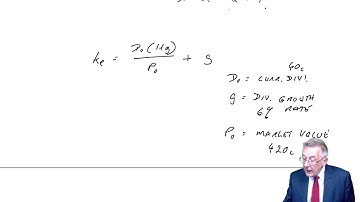 Ke = D₀(1+g) / P₀ + g
40c
D₀ = CURR. DIV.
g = DIV. GROWTH
6% RATE
P₀ = MARKET VALUE
420c